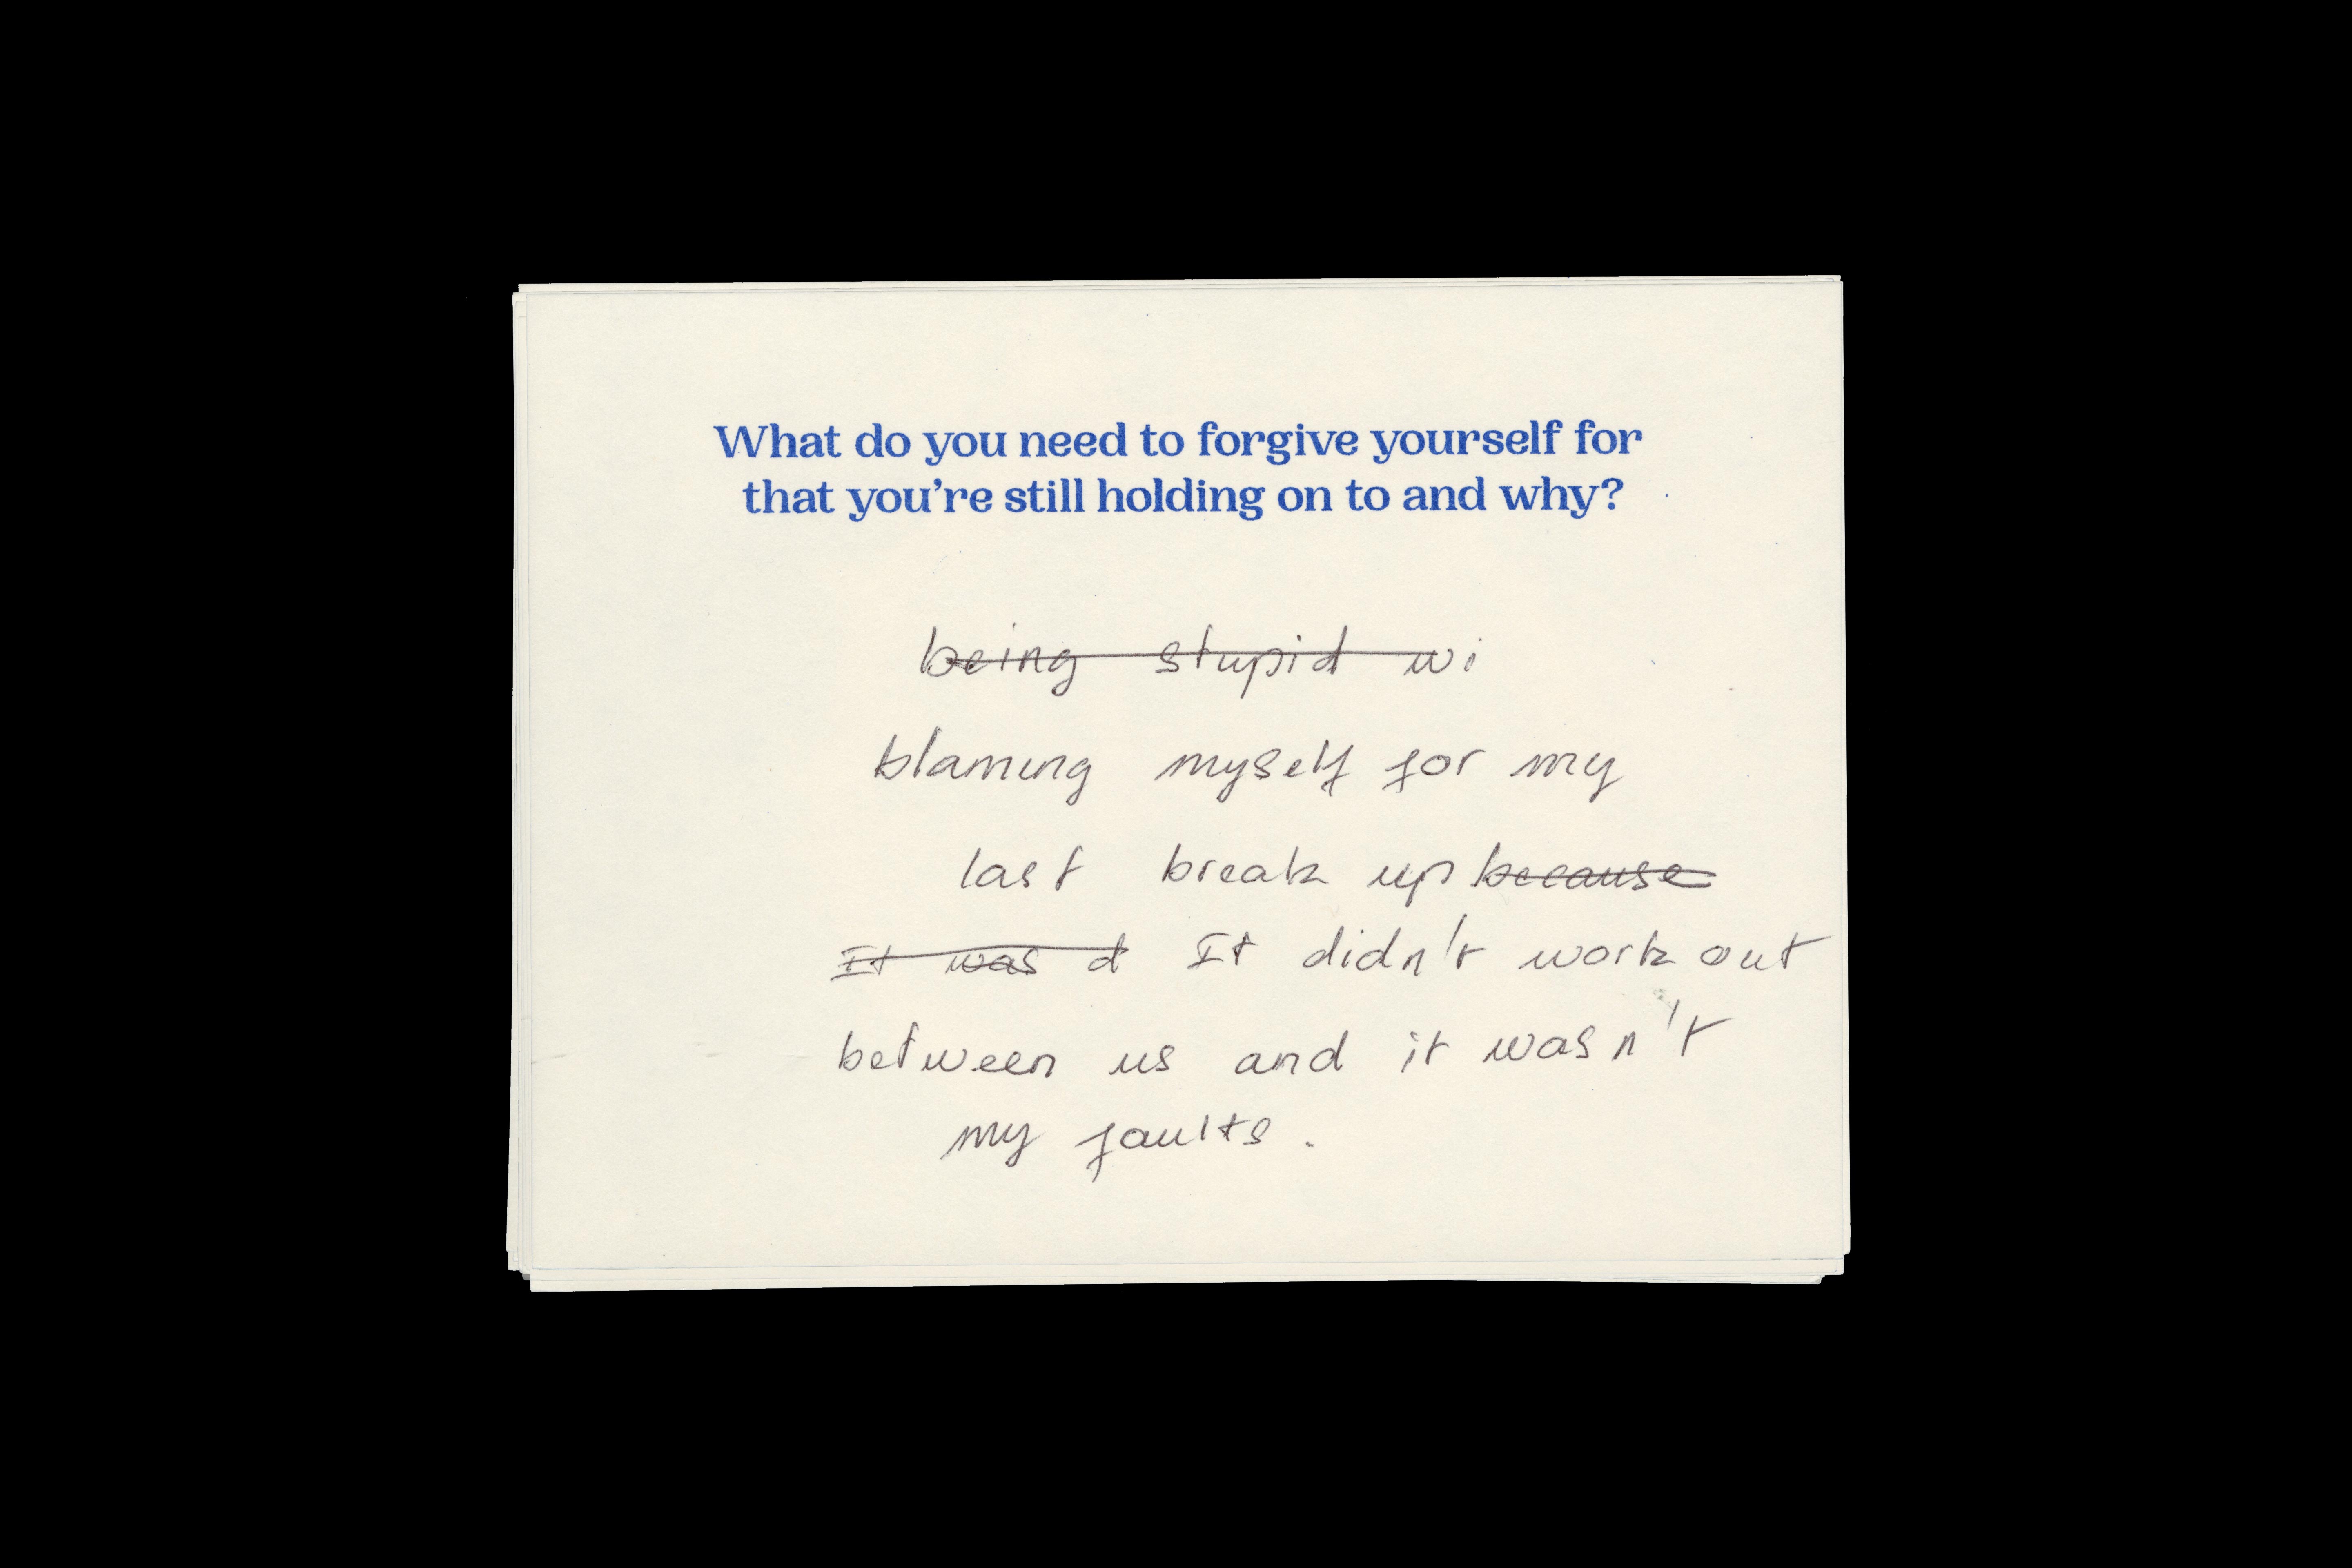 What do you need to forgive yourself for
that you're still holding on to and why?
being stupid wi
blaming myself for my
last break up because
It was d It didn't work out
between us and it wasn't
my faults.